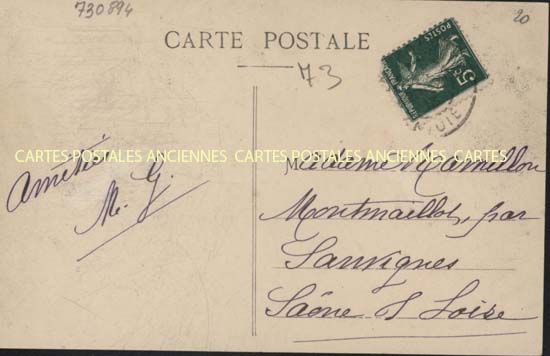 730894
20
CARTE POSTALE
73
5c
POSTES
CARTES POSTALES ANCIENNES CARTES POSTALES ANCIENNES
Amitié
M. G.
Madame
Montmaillot, par
Sanvignes
Saône & Loire